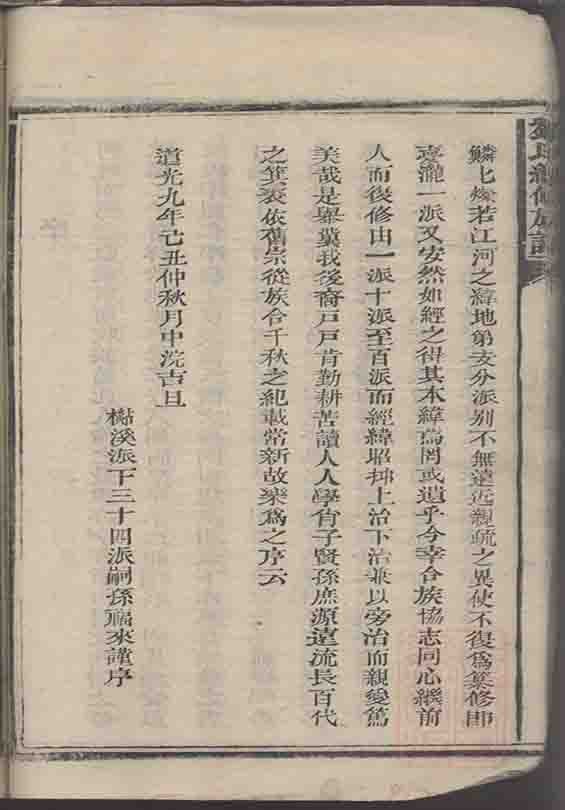 鱗比燦若江河之緯地第支分派别不無遠近親疏之異使不復爲纂修即
臺瀧一派又安然如經之得其本緯焉罔或遺乎今幸合族協志同心纘前
人而復修由一派十派至百派而經緯昭抑上治下治兼以旁治而親變篤
美哉是舉冀我後裔戸戸肯勤耕苦讀人人學肖子賢孫庶源遠流長百代
之箕裘依舊宗從族合千秋之紀載常新故樂爲之序云
道光九年己丑仲秋月中浣吉旦
溪派下三十四派嗣孫福來謹序
氏續修族譜